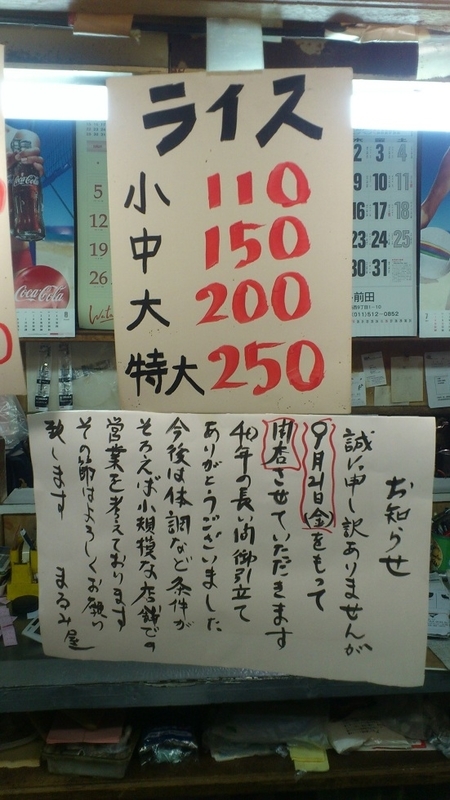 ライス
小 110
中 150
大 200
特大 250
お知らせ
誠に申し訳ありませんが
9月21日(金)をもって
閉店させていただきます
40年の長い間御引立て
ありがとうございました
今後は体調など条件が
そろえば小規模な店舗での
営業を考えております
その節はよろしくお願い
致します まるみ屋
Coca-Cola
Coca-Cola
8
5
12
19
26
2 3 4
9 10 11
16 17 18
23 24 25
30 31
前田
(011)512-0852